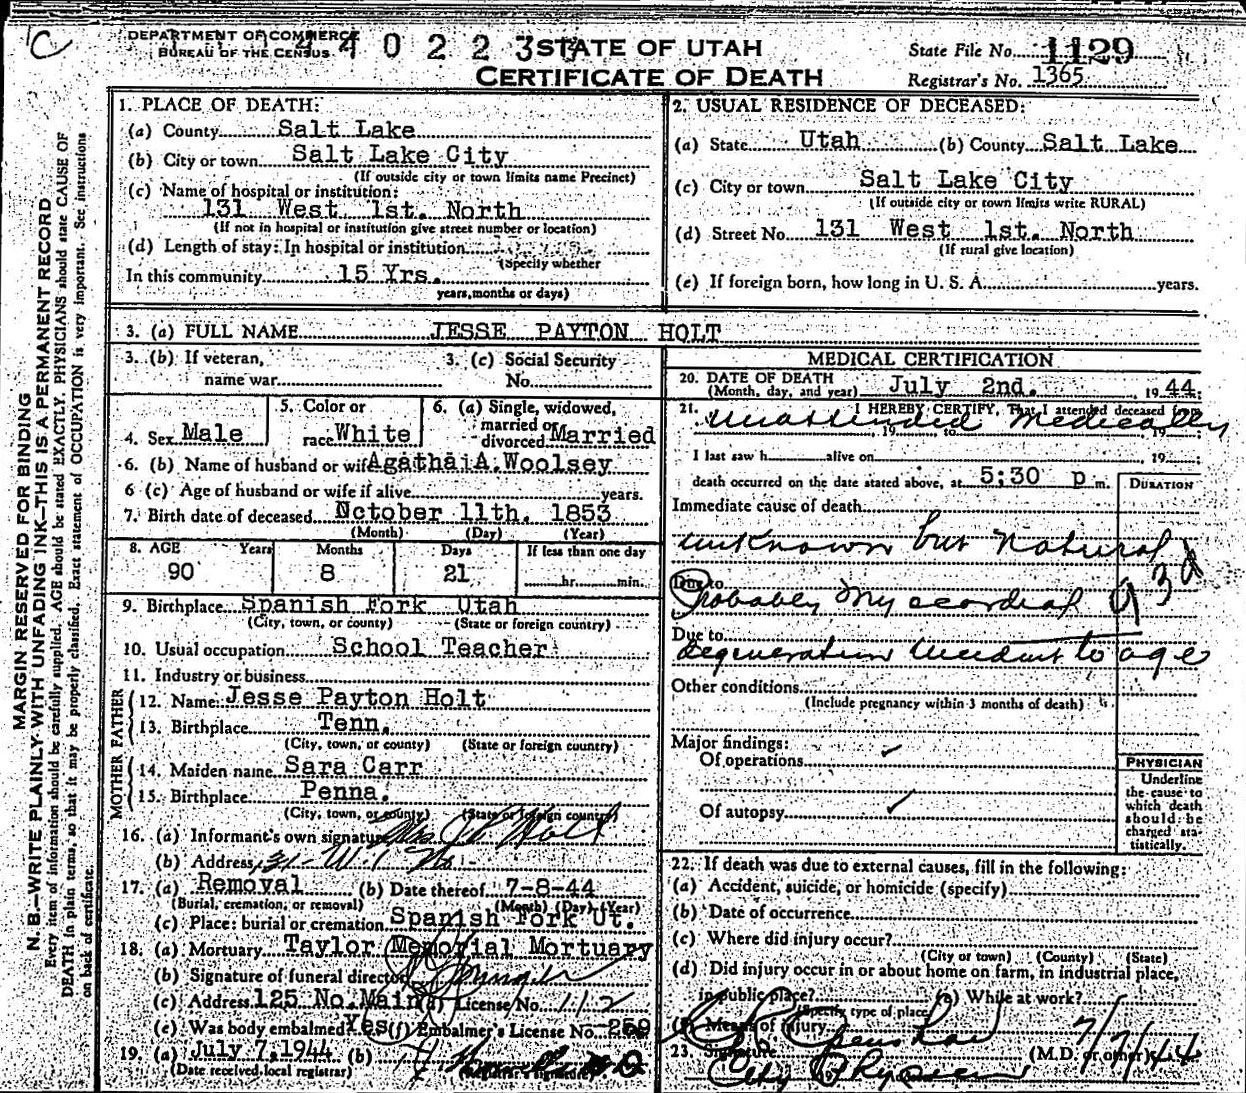 C
DEPARTMENT OF COMMERCE
BUREAU OF THE CENSUS
STATE OF UTAH
CERTIFICATE OF DEATH
State File No. 1129
Registrar's No. 1365
MARGIN RESERVED FOR BINDING
N. B.—WRITE PLAINLY WITH UNFADING INK—THIS IS A PERMANENT RECORD
Every item of information should be carefully supplied. AGE should be stated EXACTLY. PHYSICIANS should state CAUSE OF
DEATH in plain terms, so that it may be properly classified. Exact statement of OCCUPATION is very important. See instructions
on back of certificate.
1. PLACE OF DEATH:
(a) County Salt Lake
(b) City or town Salt Lake City
(If outside city or town limits name Precinct)
(c) Name of hospital or institution:
131 West 1st. North
(If not in hospital or institution give street number or location)
(d) Length of stay: In hospital or institution
(Specify whether
In this community 15 Yrs.
years, months or days)
2. USUAL RESIDENCE OF DECEASED:
(a) State Utah (b) County Salt Lake
(c) City or town Salt Lake City
(If outside city or town limits write RURAL)
(d) Street No. 131 West 1st. North
(If rural give location)
(e) If foreign born, how long in U. S. A. years.
3. (a) FULL NAME JESSE PAYTON HOLT
3. (b) If veteran, name war
3. (c) Social Security No.
4. Sex Male
5. Color or race White
6. (a) Single, widowed, married or divorced Married
6. (b) Name of husband or wife Agatha A. Woolsey
6 (c) Age of husband or wife if alive years.
7. Birth date of deceased October 11th. 1853
(Month) (Day) (Year)
8. AGE Years Months Days If less than one day
90 8 21 hr. min.
9. Birthplace Spanish Fork Utah
(City, town, or county) (State or foreign country)
10. Usual occupation School Teacher
11. Industry or business
FATHER
12. Name Jesse Payton Holt
13. Birthplace Tenn.
(City, town, or county) (State or foreign country)
MOTHER
14. Maiden name Sara Carr
15. Birthplace Penna.
(City, town, or county) (State or foreign country)
16. (a) Informant's own signature Mrs J P Holt
(b) Address
17. (a) Removal (b) Date thereof 7-8-44
(Burial, cremation, or removal) (Month) (Day) (Year)
(c) Place: burial or cremation Spanish Fork Ut.
18. (a) Mortuary Taylor Memorial Mortuary
(b) Signature of funeral director
(c) Address 125 No. Main License No. 112
(e) Was body embalmed? Yes (f) Embalmer's License No. 250
19. (a) July 7, 1944 (b)
(Date received local registrar) (Registrar's signature)
MEDICAL CERTIFICATION
20. DATE OF DEATH
(Month, day, and year) July 2nd. , 1944
21. I HEREBY CERTIFY, That I attended deceased from
Unattended Medically
19 to 19
I last saw h alive on , 19
death occurred on the date stated above, at 5:30 p m.
DURATION
Immediate cause of death
unknown but Natural
Due to
Probably Myocardial 93d
Due to
degeneration incident to age
Other conditions
(Include pregnancy within 3 months of death)
Major findings:
Of operations
Of autopsy
PHYSICIAN
Underline
the cause to
which death
should be
charged sta-
tistically.
22. If death was due to external causes, fill in the following:
(a) Accident, suicide, or homicide (specify)
(b) Date of occurrence
(c) Where did injury occur?
(City or town) (County) (State)
(d) Did injury occur in or about home on farm, in industrial place,
in public place? (e) While at work?
(Specify type of place)
(f) Means of injury
23. Signature (M.D. or other) 7/7/44
City Physician